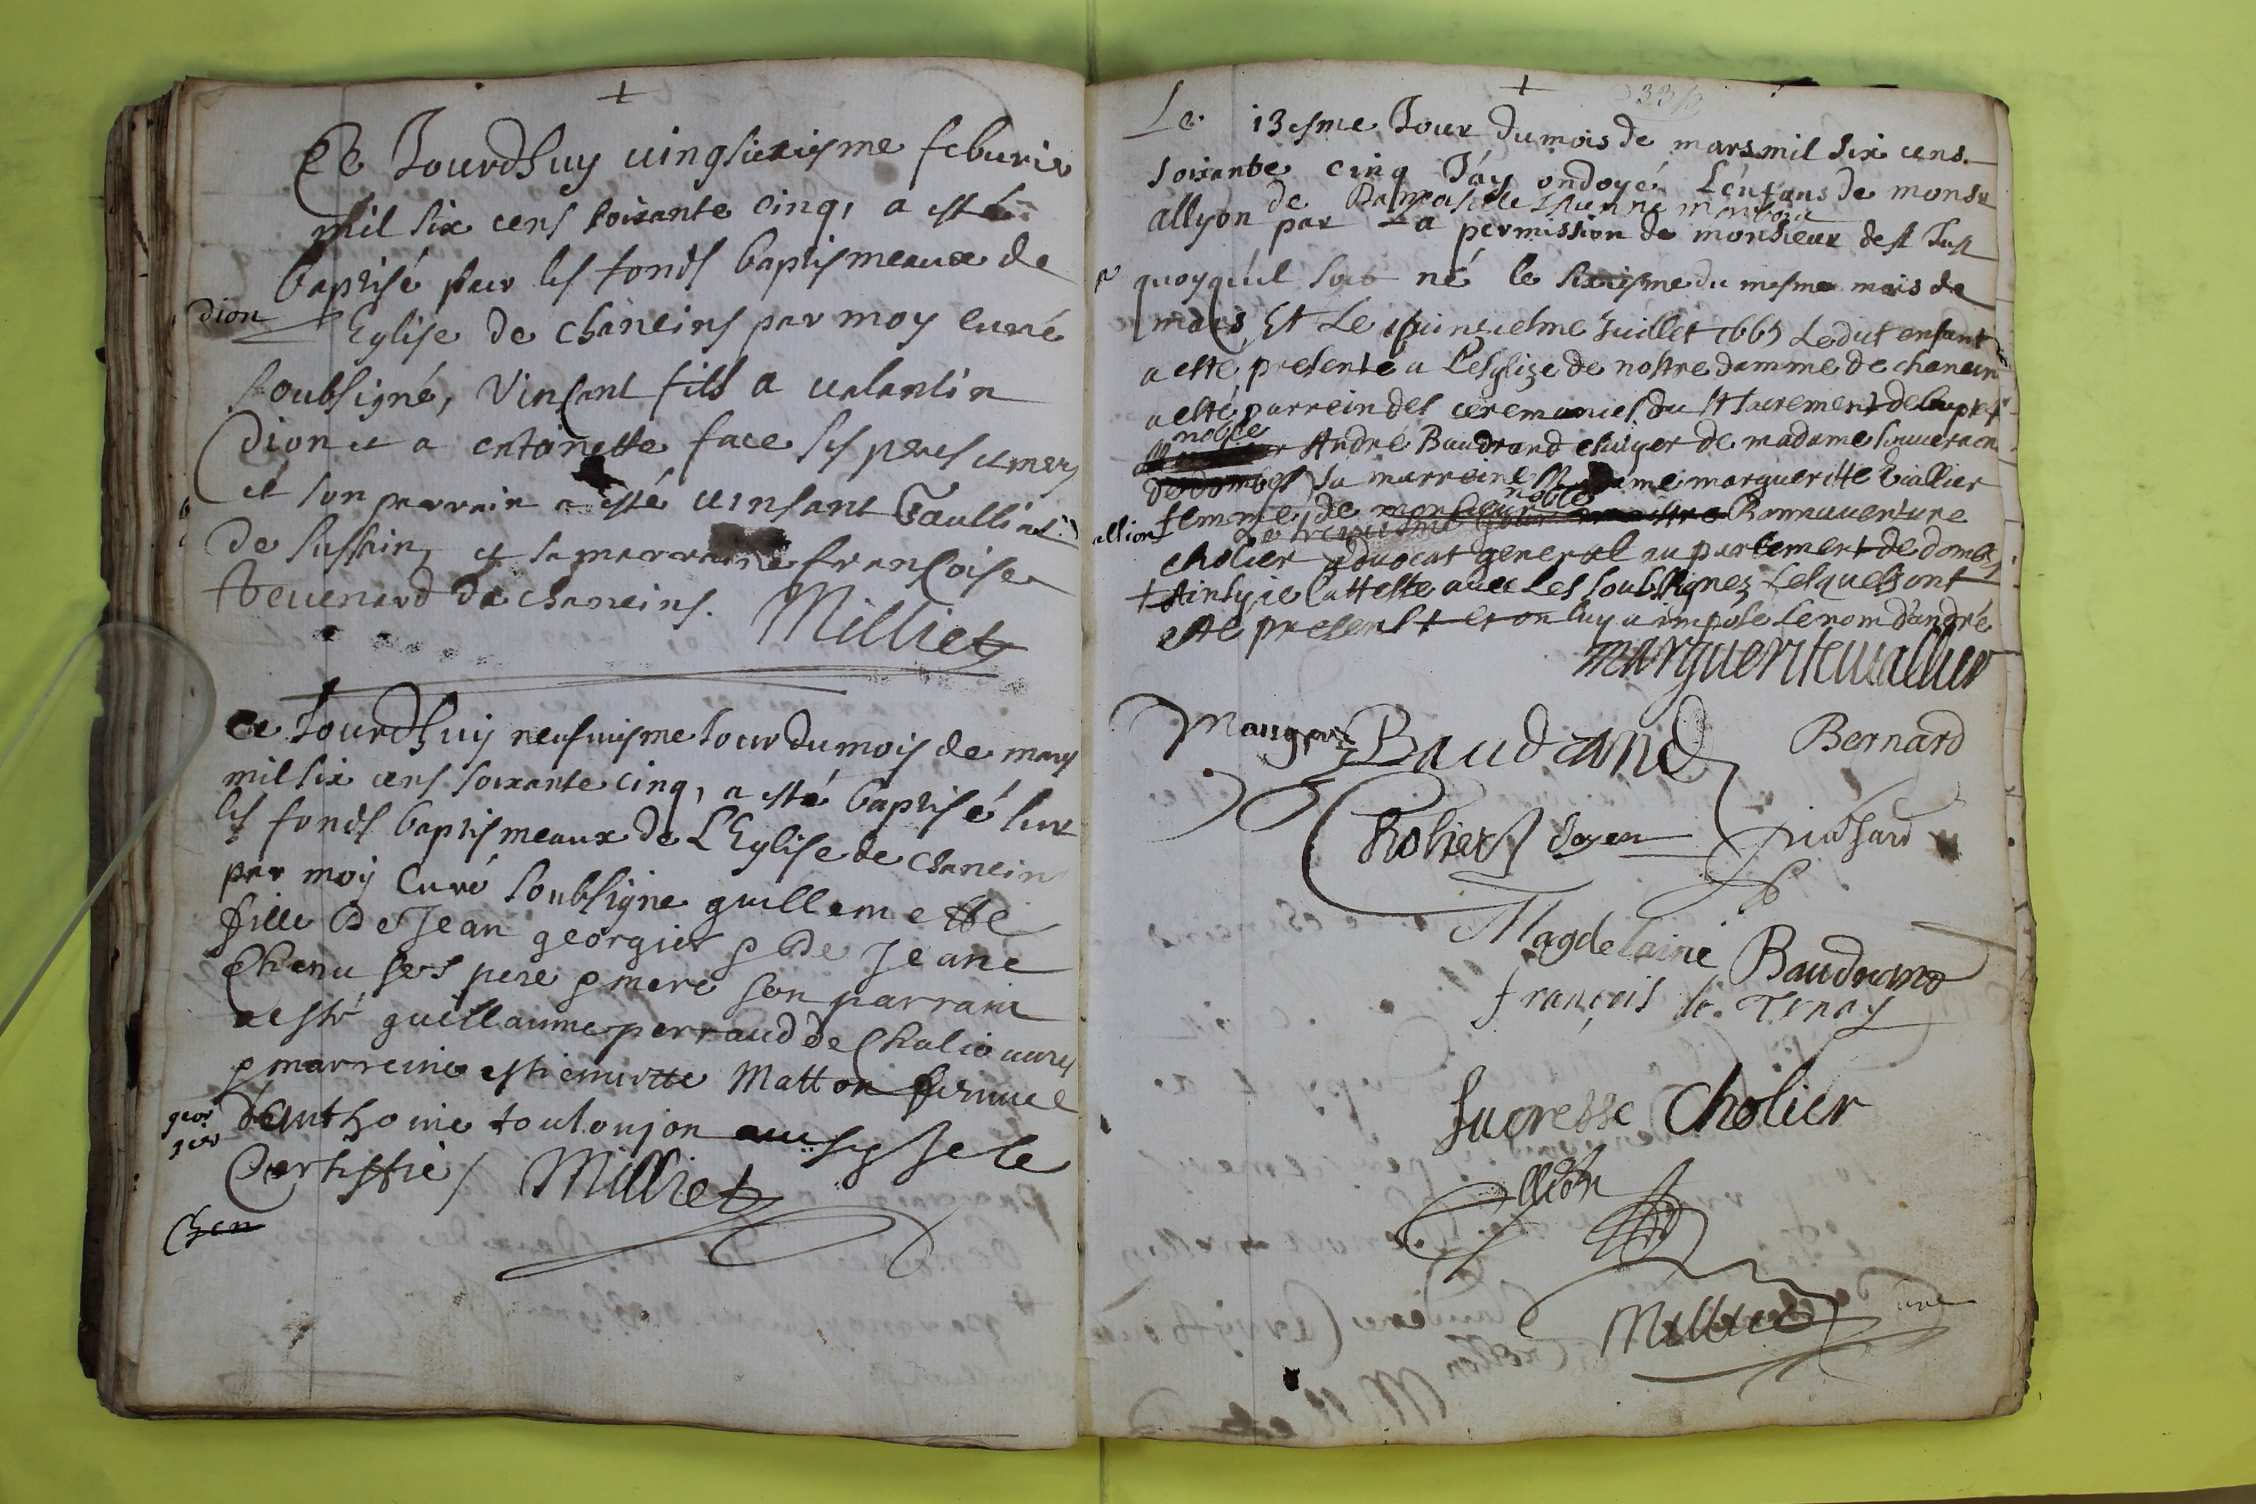 +
Ce Jourdhuy vingsixiysme feburier
mil six cens soixante cinq, a esté
baptisé sur les fonds baptismeaux de
dion
Eglise de Chaneins par moy curé
soubsigné, Vinsant fils a valantin
dion et a entoinette face ses peres et mere
et son parrain a esté vinsant
de et sa marraine françoise
tevenard de chaneins. Milliet
Ce Jourdhuy neufviysme Jour du mois de mars
mil six cens soixante cinq, a esté baptisé sur
les fonds baptismeaux de L'Eglise de Chanein
par moy Curé soubsigne guillemette
fille De Jean georgier & De Jeane
Chenu ses pere & mere son parrain
a esté guillaume perraud de
& marreine estiennette Matton femme
geor
gier
d'Anthoine toulonjon ainsy Je le
Certiffie / Milliet
Chen
+
Le 13esme Jour du mois de mars mil six cens
soixante cinq J'ay ondoyé L'enfans de monsr
de
allyon par La permission de monsieur de st Just
quoyqu'il soit né le sixiysme du mesme mois de
mars, Et Le quinziesme Juillet 1665 Ledit enfant
a esté presenté a L'esglize de nostre damme de chanein
a esté parrein des ceremonies du st sacrement de
noble
André Baudrand escuyer de madame souveraine
de dombes sa marreine dame margueritte Viallier
noble
femme de monsieur Bonnaventure
allion
cholier advocat general au parlement de dombes
+ Ainsy ie l'atteste avec Les soubsignez Lesquels ont
esté present et on luy a imposé Le nom d'andré
marguerite viallier
Mauger
Baudrand
Bernard
Cholier doyen
Magdelaine Baudrand
françois
Cholier
allion
Milliet curé